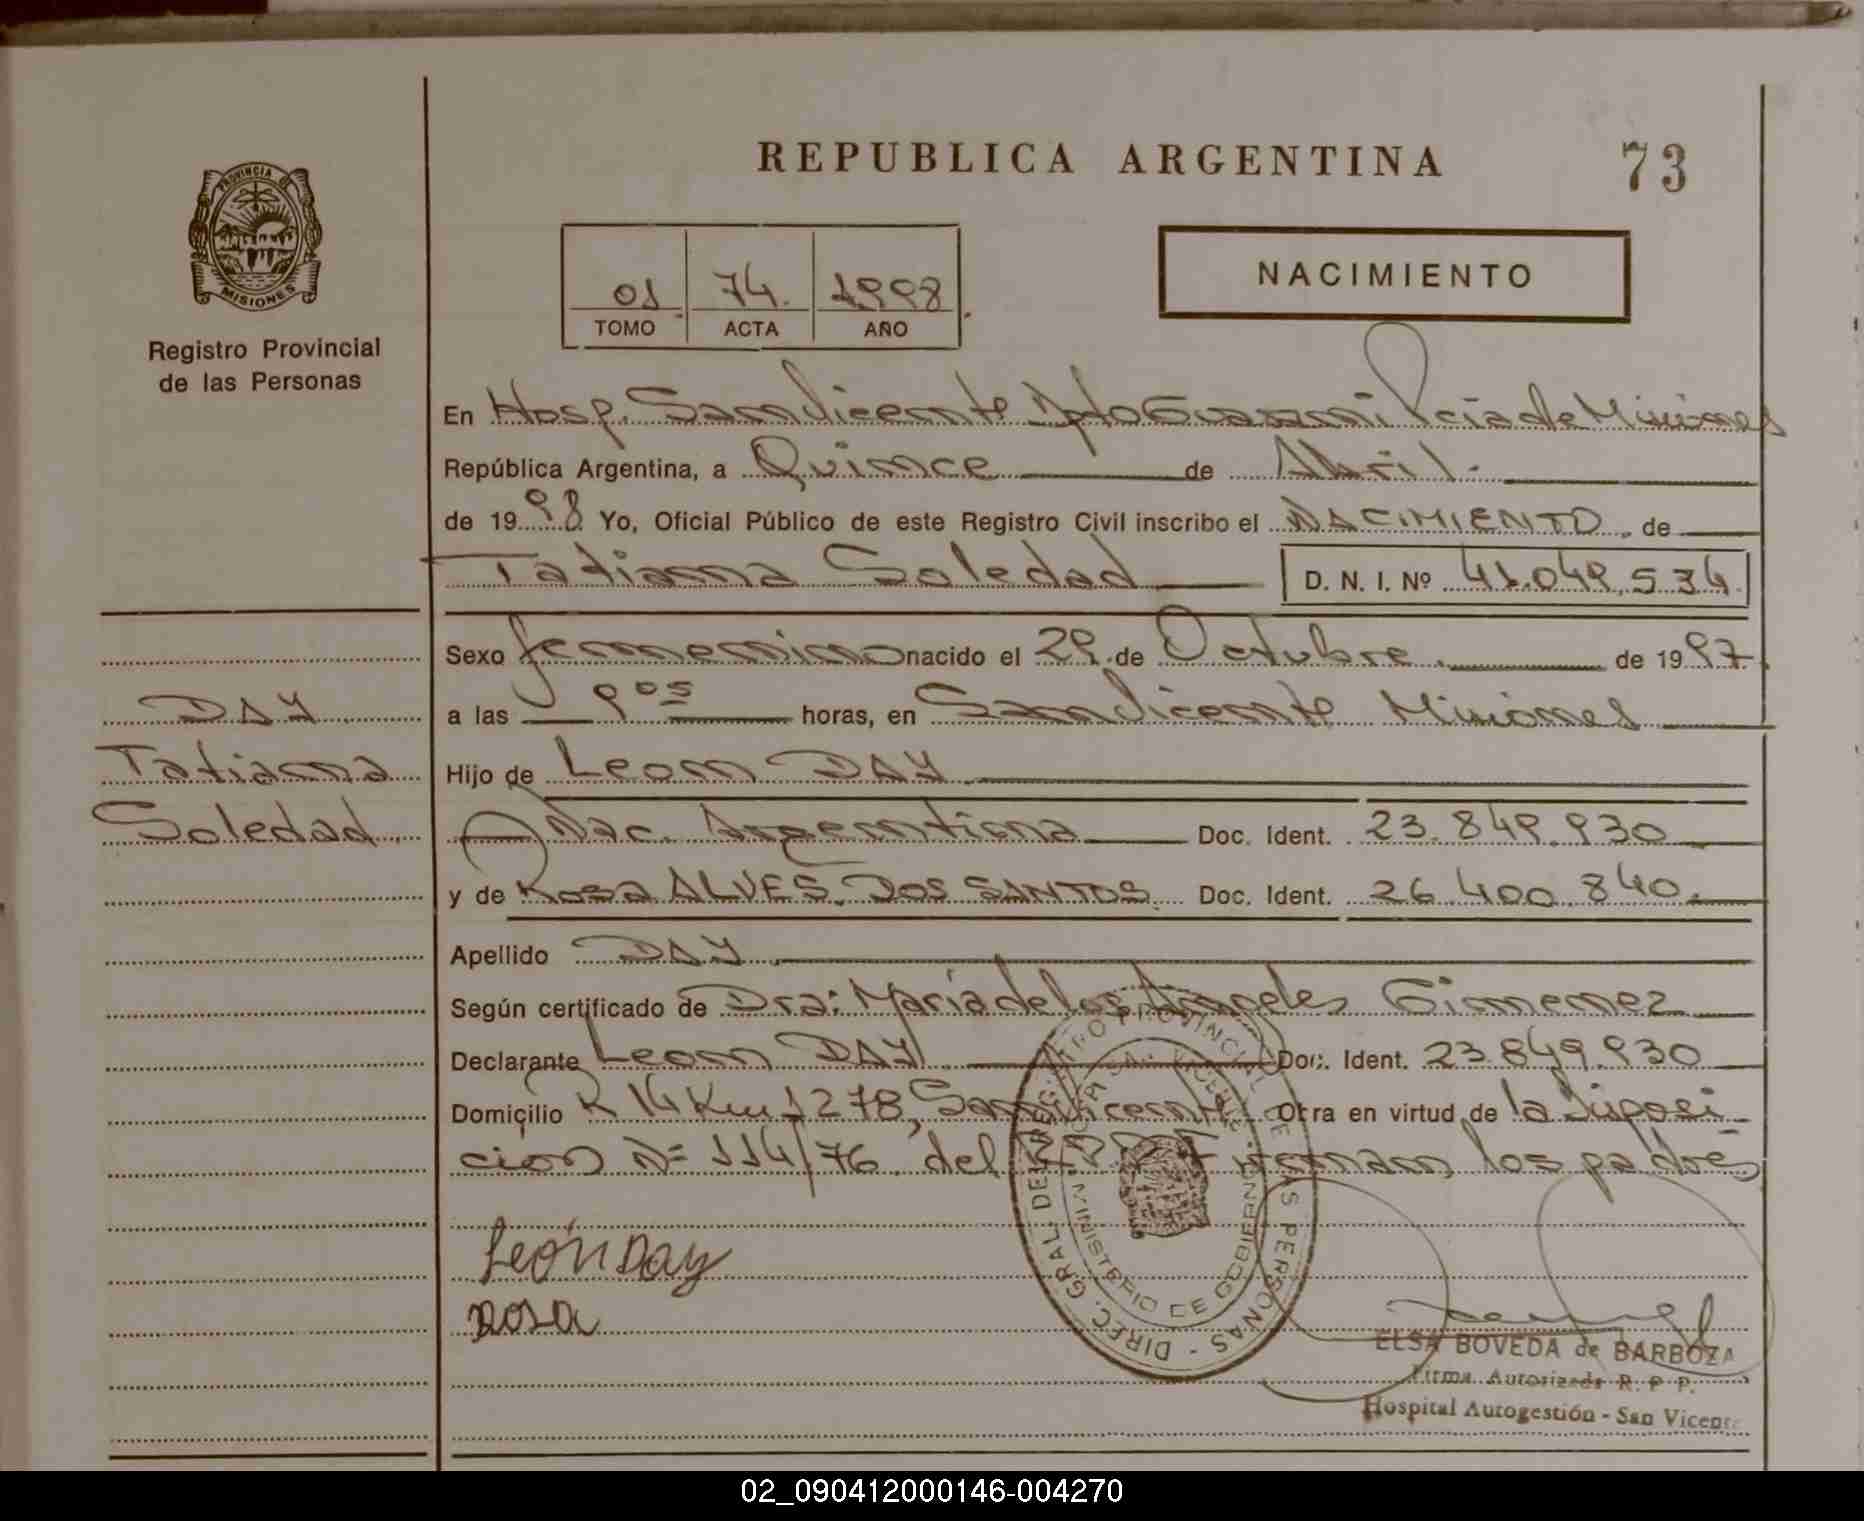 REPUBLICA ARGENTINA
73
PROVINCIA DE
MISIONES
Registro Provincial
de las Personas
01 74. 1998
TOMO ACTA AÑO
NACIMIENTO
En Hosp. San Vicente Dpto Guarani Pcia de Misiones
República Argentina, a Quince de Abril.
de 1998 Yo, Oficial Público de este Registro Civil inscribo el NACIMIENTO de
Tatiana Soledad D. N. I. Nº 41.049.534
Sexo femenino nacido el 29 de Octubre de 1997
a las 9 os horas, en San Vicente Misiones
Hijo de Leon DAY
Nac. Argentina Doc. Ident. 23.849.930
y de Rosa ALVES DOS SANTOS Doc. Ident. 26.400.840.
Apellido DAY
Según certificado de Dra: Maria de los Angeles Gimenez
Declarante Leon DAY Doc. Ident. 23.849.930
Domicilio R 14 Km 1278, San Vicente Obra en virtud de la Disposi
cion Nº 114/76 del R.P.P. Firman los padres
DAY
Tatiana
Soledad
León Day
Rosa
DIREC. GRAL. DEL REGISTRO PROVINCIAL DE LAS PERSONAS
MINISTERIO DE GOBIERNO
ELSA BOVEDA de BARBOZA
Firma Autorizada R. P. P.
Hospital Autogestión - San Vicente
02_090412000146-004270